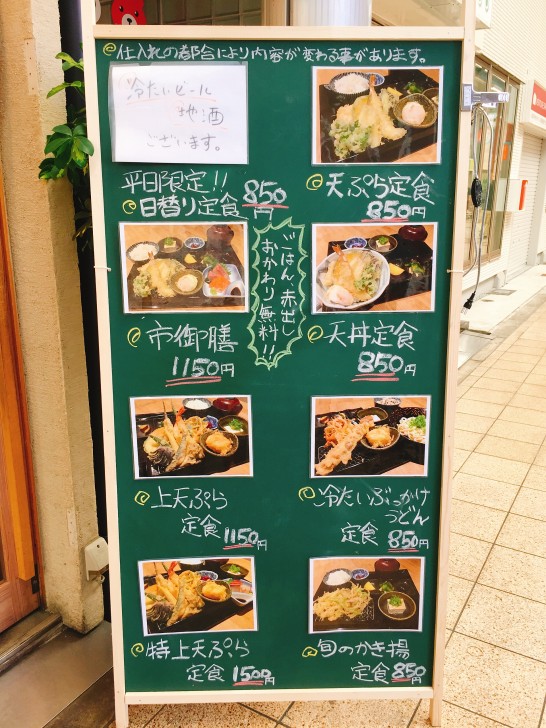 仕入れの都合により内容が変わる事があります。
冷たいビール
地酒
ございます。
平日限定!!
日替り定食 850円
天ぷら定食
850円
ごはん、赤出し
おかわり無料!!
市御膳
1150円
天丼定食
850円
上天ぷら
定食 1150円
冷たいぶっかけ
うどん
定食 850円
特上天ぷら
定食 1500円
旬のかき揚
定食 850円